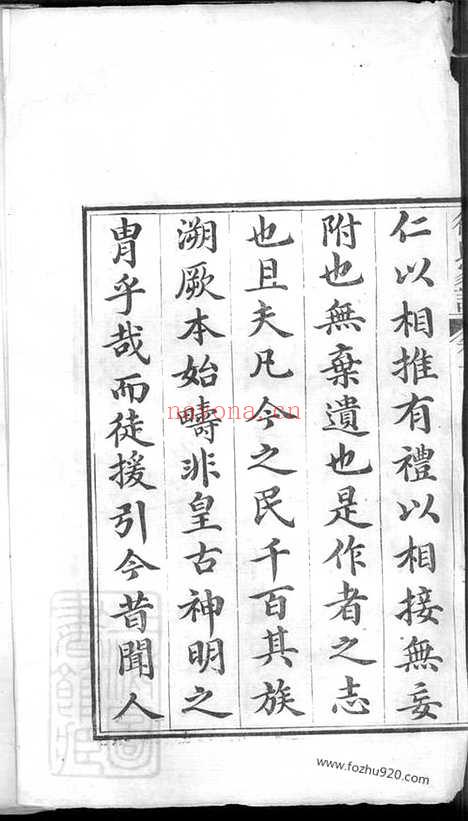 仁以相推有禮以相接無妄
附也無棄遺也是作者之志
也且夫凡今之民千百其族
溯厥本始疇非皇古神明之
胄乎哉而徒援引今昔聞人
nayona.cn
www.fozhu920.com